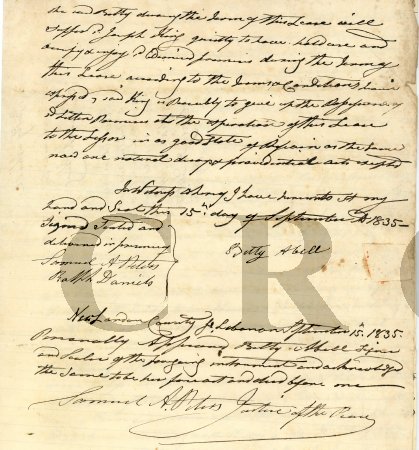 the said Betty during the Term of this Lease will
suffer sd Joseph King quietly to have hold use and
occupy & enjoy sd Demised premises during the Term of
this Lease according to the Terms & Conditions herein
said King to give up the Possession of
Premises at the expiration of this Lease
to the Lessor in as good State of Repair as the same
now are natural decay & providential acts excepted
In Witness whereof I have hereunto set my
hand and Seal this 15th day of September AD 1835-
Signed Sealed and
delivered in presence of
Samuel A Peters
Ralph Daniels
Betty Abell
New London County Ss Lebanon September 15th 1835.
Personally Appeared Betty Abell Signer
and Sealer of the foregoing instrument and acknowledged
the same to be her free act and deed before me
Samuel A. Peters Justice of the Peace
C R O